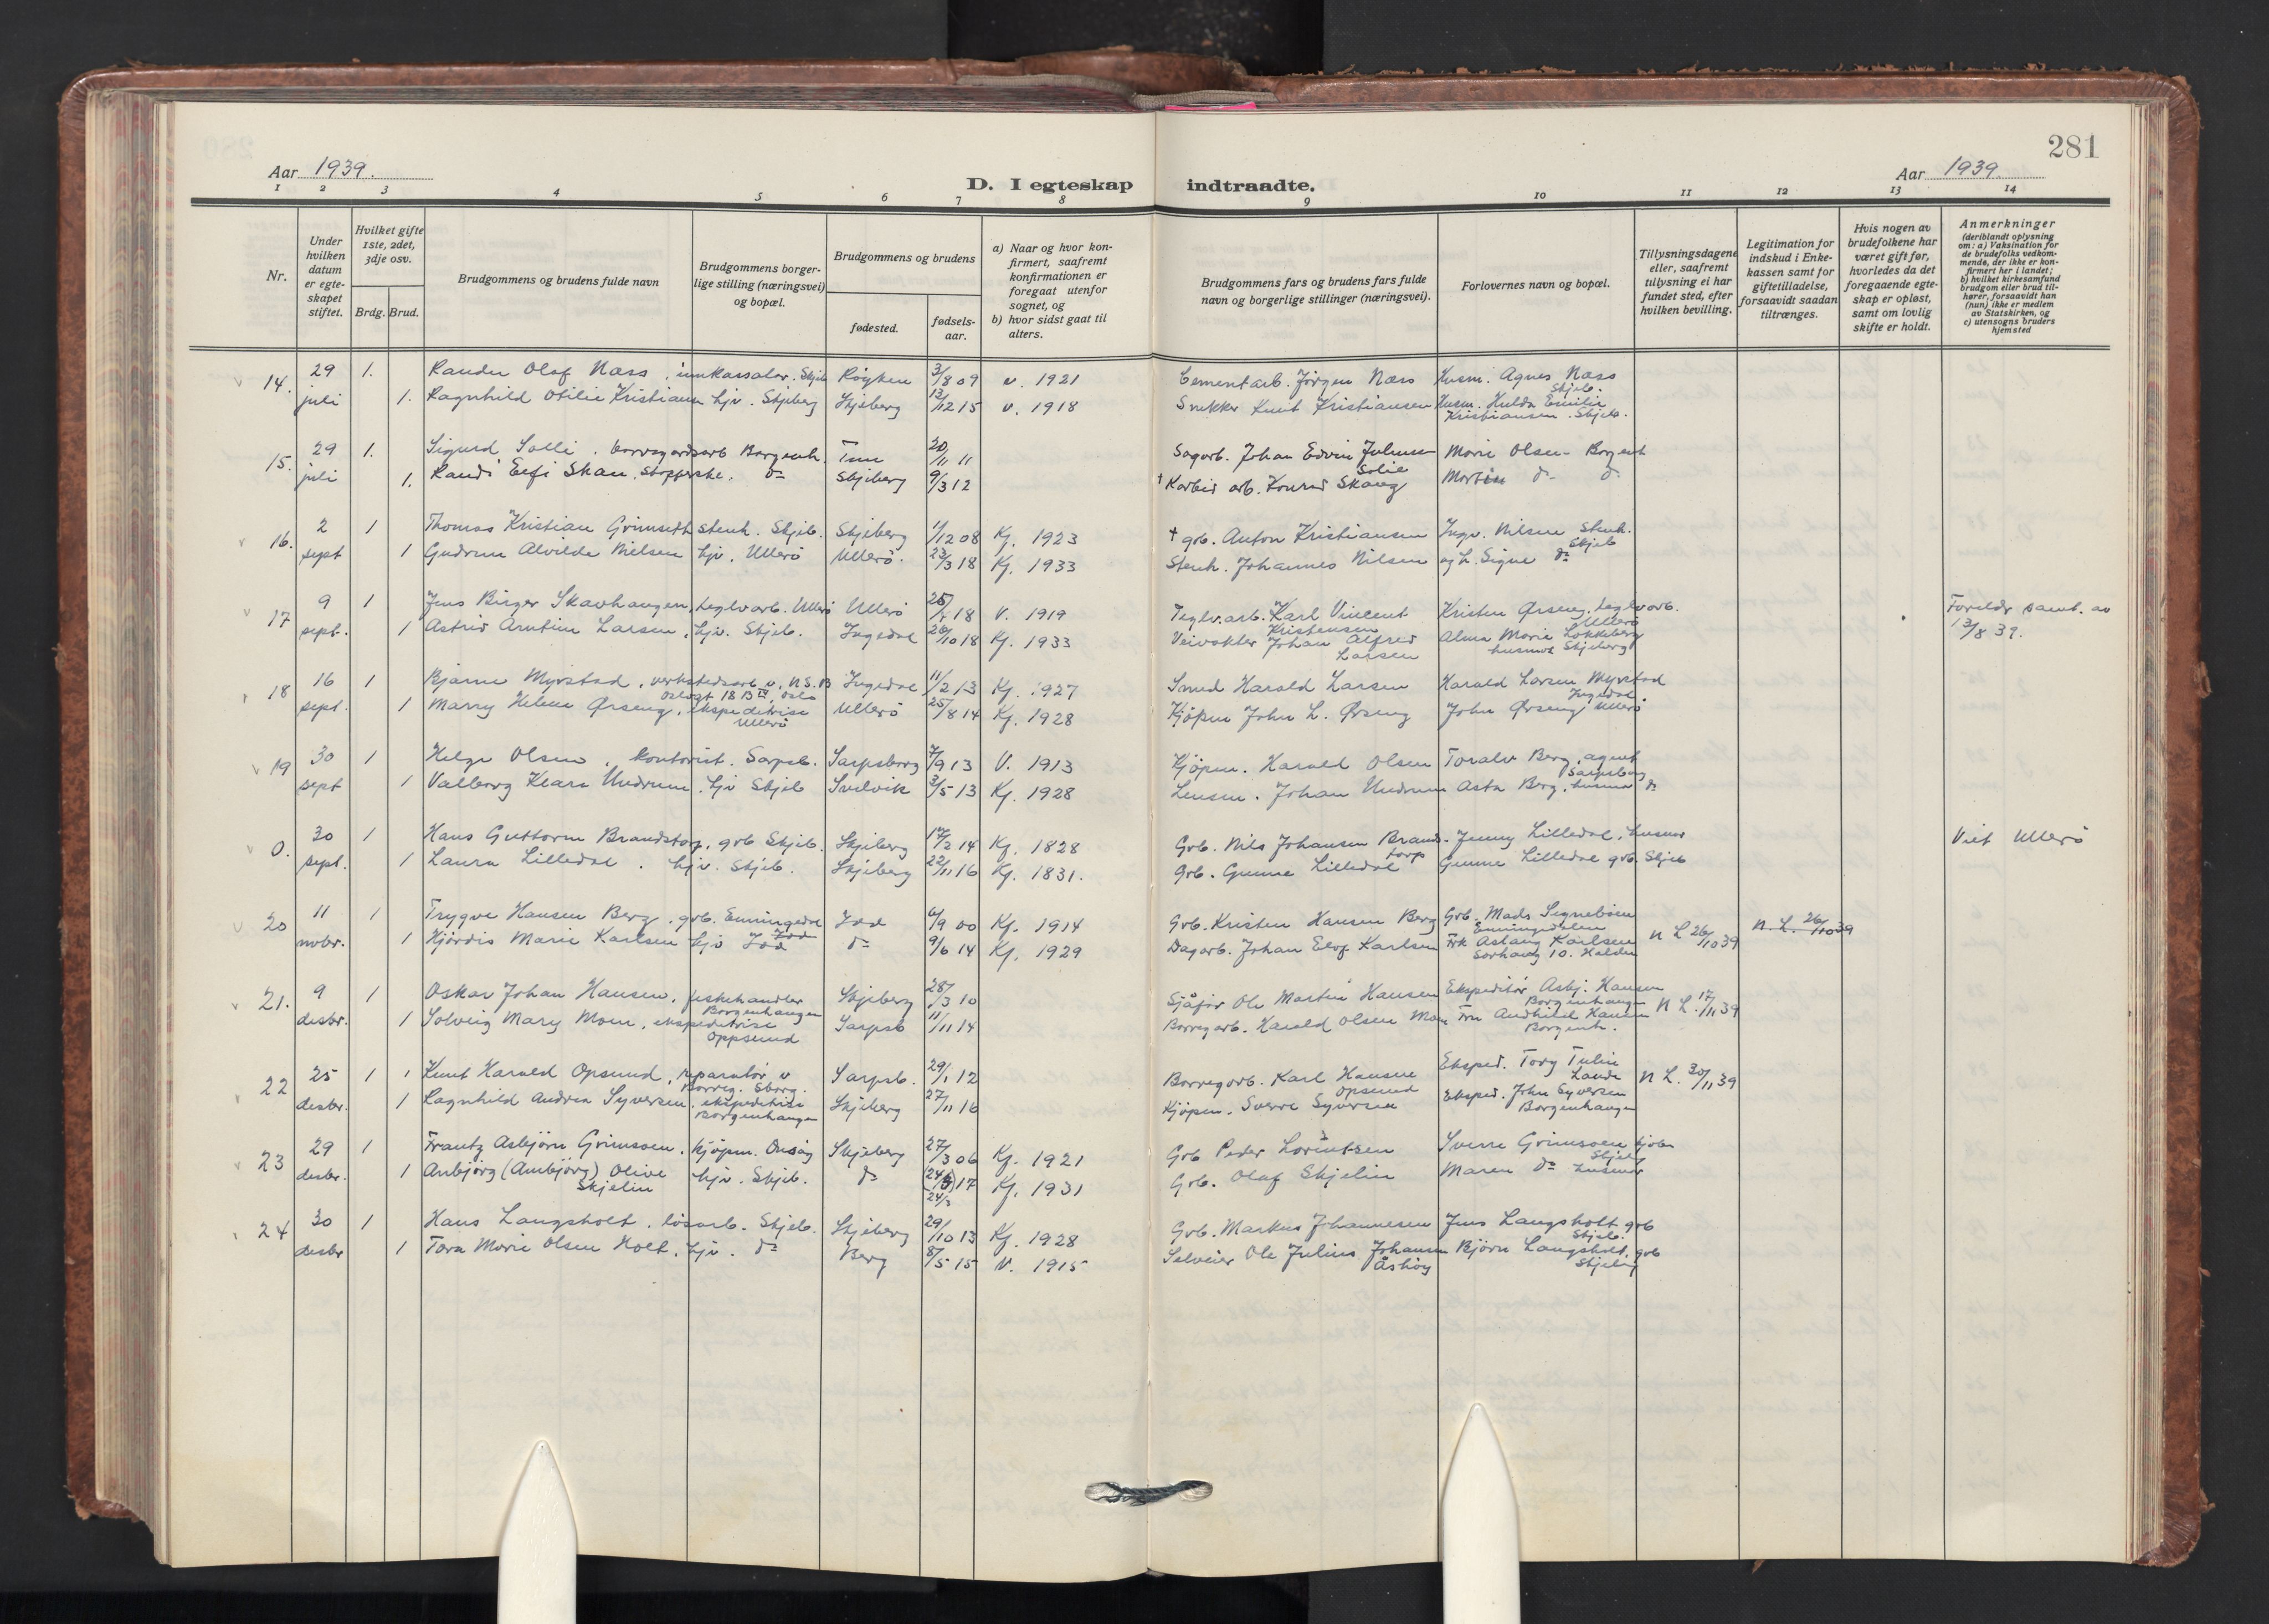 281
Aar 1939.
Aar 1939.
D. I egteskap indtraadte.
1 2 3 4 5 6 7 8 9 10 11 12 13 14
Nr.
Under hvilken datum er egteskapet stiftet.
Hvilket gifte 1ste, 2det, 3dje osv.
Brdg. Brud.
Brudgommens og brudens fulde navn
Brudgommens borgerlige stilling (næringsvei) og bopæl.
Brudgommens og brudens
fødested.
fødselsaar.
a) Naar og hvor konfirmert, saafremt konfirmationen er foregaat utenfor sognet, og
b) hvor sidst gaat til alters.
Brudgommens fars og brudens fars fulde navn og borgerlige stillinger (næringsvei).
Forlovernes navn og bopæl.
Tillysningsdagene eller, saafremt tillysning ei har fundet sted, efter hvilken bevilling.
Legitimation for indskud i Enkekassen samt for giftetilladelse, forsaavidt saadan tiltrænges.
Hvis nogen av brudefolkene har været gift før, hvorledes da det foregaaende egteskap er opløst, samt om lovlig skifte er holdt.
Anmerkninger
(deriblandt oplysning om: a) Vaksination for de brudefolks vedkommende, der ikke er konfirmert her i landet; b) hvilket kirkesamfund brudgom eller brud tilhører, forsaavidt han (hun) ikke er medlem av Statskirken, og c) utensogns bruders hjemsted
14. 29 1. Olaf Næss, innkassatør. Skjeb Røyken 3/8 09 v. 1921 Cementarb. Jørgen Næss Husm. Agnes Næss Skjeb.
juli 1. Ragnhild Otilie Kristiansen hjv. Skjeberg Skjeberg 13/12 15 v. 1918 Snekker Knut Kristiansen Husm. Hulda Emilie Kristiansen. Skjeb.
15. 29 1. Sigurd Solli. borregardsarb Borgenh. Tune 20/11 11 Sagarb. Johan Edvin Solie Marie Olsen - Borgenh
juli 1. Randi Elfi Skau, stopperske. do Skjeberg 9/3 12 † Karbid arb. Konrad Skaug Martin do do
16. 2 1 Thomas Kristian Grimseth stenh. Skjeb. Skjeberg 1/12 08 Kj. 1923 † grb. Anton Kristiansen Ingv. Nilsen stenh. Skjeb
sept 1 Gudrun Alvilde Nielsen hjv. Ullerö Ullerö. 23/3 18 Kj. 1933 Stenh. Johannes Nilsen og h. Signe do
17 9 1 Jens Birger Skavhaugen, teglvarb. Ullerö Ullerö 18 V. 1919 Teglv.arb. Karl Vincent Kristensen Kristen Ørseng, teglvarb. Ullerö Foreldr samt. av 13/8 39.
sept. 1 Astrid Arntine Larsen, hjv. Skjeb. Ingedal 26/10 18 Kj. 1933 Veivokter Johan Alfred Larsen Alma Marie Løkkeberg husmor Skjeberg
18 16 1 Bjarne Myrstad, verkstedsarb v. N.S.B Oslo Ingedal 11/2 13 Kj. 1927 Smed Harald Larsen Harald Larsen Myrstad Ingedal.
sept. 1 Marry Helene Ørseng, ekspeditrise Ullerö Ullerö 25/8 14 Kj. 1928 Kjøpm John L. Ørseng John Ørseng Ullerö
19 30 1 Helge Olsen, kontorist. Sarpsb. Sarpsborg 7/9 13 V. 1913 Kjøpm. Harald Olsen Toralv Berg, agent Sarpsborg
sept 1 Valborg Klara Undrum, hjv Skjeb Svelvik 3/5 13 Kj. 1928 Lensm. Johan Undrum Asta Berg, husmor do
0. 30 1 Hans Guttorm Brandstorp, grb Skjeb. Skjeberg 14 Kj. 1828 Grb. Nils Johansen Brandstorp Jenny Lilledal, husmor Viet Ullerö
sept. 1 Laura Lilledal. hjv. Skjeb. Skjeberg 22/11 16 Kj. 1831. Grb. Gunne Lilledal Gunne Lilledal grb. Skjeb
20 11 1 Trygve Hansen Berg, grb. Enningedal Idd Idd 6/9 00 Kj. 1914 Grb. Kristen Hansen Berg Grb. Mads Enningedalen N L 26/10 39 N. L. 26/10 39
novbr. 1 Hjördis Marie Karlsen hjv Idd do 9/6 14 Kj. 1929 Dagarb. Johan Elof Karlsen Frk Aslaug Karlsen 10. Halden
21. 9 1 Oskar Johan Hansen, fiskehandler Borgenhaugen Skjeberg 28/3 10 Sjåfør Ole Martin Hansen Ekspeditör Asbj. Hansen Borgenhaugen N L. 17/11 39
desbr. 1 Solveig Mary Moen, ekspeditrise Oppsund Sarpsb 11/11 14 Borregarb. Harald Olsen Moen Fru Audhild Hansen Borgenh.
22 25 1 Knut Harald Opsund, reparatör v Borreg. Sborg. Sarpsb. 29/1 12 Borregarb. Karl Hansen Opsund Eksped. Lande N L. 30/11 39
desbr. 1 Ragnhild Andrea Syversen, ekspeditrise Borgenhaugen Skjeberg 27/11 16 Kjøpm. Sverre Syversen Eksped. John Syversen Borgenhaugen
23 29 1 Frantz Asbjörn Grimsoen, kjøpm. Onsöy Skjeberg 27/3 06 Kj. 1921 Grb Peder Lorentsen Sverre Grimsoen Skjebg
desbr. 1 Anbjørg (Ambjörg) Olive Skjelin hjv. Skjeb. do 24/3 17 Kj. 1931 Grb. Olaf Skjelin Maren do husmor
24 30 1 Hans Langsholt. lösarb. Skjeb. Skjeberg 29/10 13 Kj. 1928 Grb. Markus Johannesen Jens Langsholt grb Skjeb.
desbr 1 Tora Marie Olsen Holt, hjv. do Berg 8/5 15 V. 1915 Selveier Ole Julius Johansen Åshöy Björn Langsholt, grb Skjebg